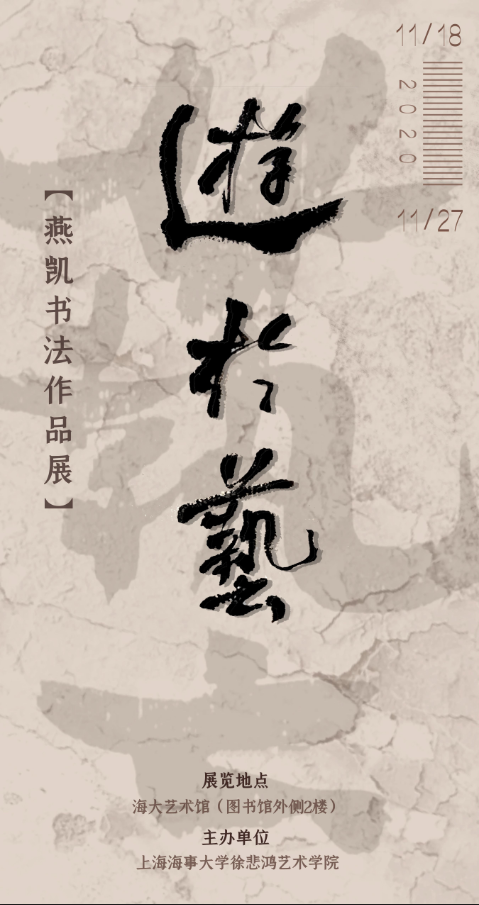 11/18
2020
11/27
遊於藝
【燕凯书法作品展】
展览地点
海大艺术馆（图书馆外侧2楼）
主办单位
上海海事大学徐悲鸿艺术学院